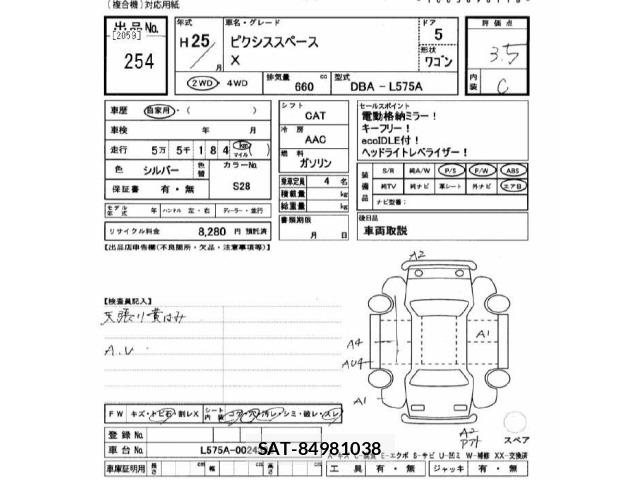 (複合機)対応用紙
出品No.
[2059]
254
年式
H25/
車名・グレード
ピクシススペース
X
ドア
5
形状
ワゴン
評価点
3.5
内装
C
2WD・4WD
排気量 660 cc
型式 DBA - L575A
車歴 自家用・( )
車検 年 月
走行 5万 5千 184 km マイル
色 シルバー 色替 カラーNo. S28
保証書 有・無
モデル年式 年 ハンドル 左・右 ディーラー・並行
リサイクル料金 8,280 円 預託済
シフト CAT
冷房 AAC
燃料 ガソリン
乗車定員 4 名
積載量 kg
総重量 kg
書類期限
月 日
セールスポイント
電動格納ミラー!
キーフリー!
ecoIDLE付!
ヘッドライトレベライザー!
装備品
S/R 純A/W P/S P/W ABS
純TV 純ナビ 革シート 外ナビ エアB
ナビ型番:
後日品
車両取説
【出品店申告欄(不良箇所・欠品・注意事項等)】
【検査員記入】
天張り黄ばみ
A.U
A2
A4
AU4
A1
A1
A2
スペア
FW キズ・トビ石・割レX シート内装 コゲ・穴・汚レ・シミ・破レ・スレ
登録No.
車台No. L575A-0024
SAT-84981038
E-エクボ S-サビ U-凹ミ W-補修 XX-交換済
車庫証明用 長さ cm 幅 cm 高さ cm
工具 有・無 ジャッキ 有・無